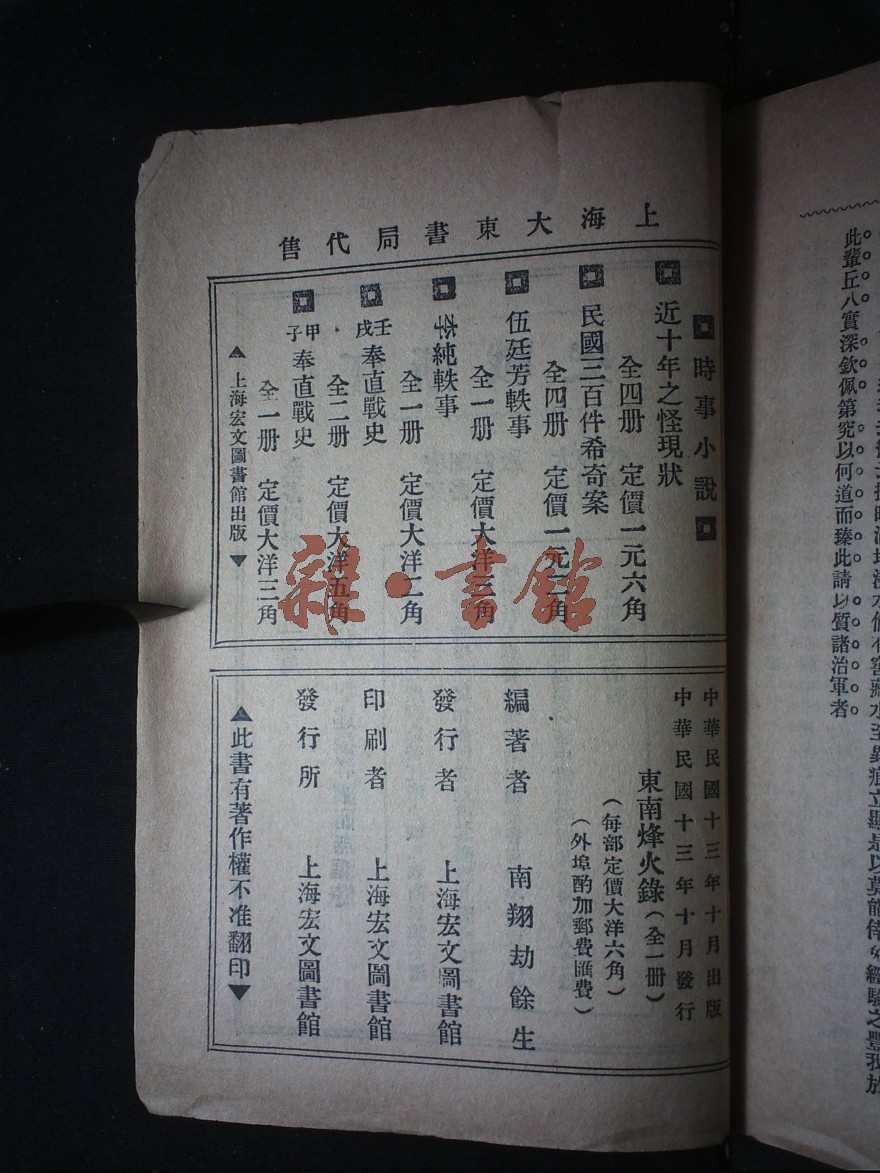 此輩丘八實深欽佩第究以何道而臻此請以質諸治軍者
上海大東書局代售
時事小說
近十年之怪現狀
全四册 定價一元六角
民國三百件希奇案
全四册 定價一元二角
伍廷芳軼事
全一册 定價大洋三角
李純軼事
全一册 定價大洋二角
壬戌奉直戰史
全二册 定價大洋五角
甲子奉直戰史
全一册 定價大洋三角
▲上海宏文圖書館出版▼
中華民國十三年十月出版
中華民國十三年十月發行
東南烽火錄(全一册)
(每部定價大洋六角)
(外埠酌加郵費匯費)
編著者 南翔劫餘生
發行者 上海宏文圖書館
印刷者 上海宏文圖書館
發行所 上海宏文圖書館
▲此書有著作權不准翻印▼
雜·書館